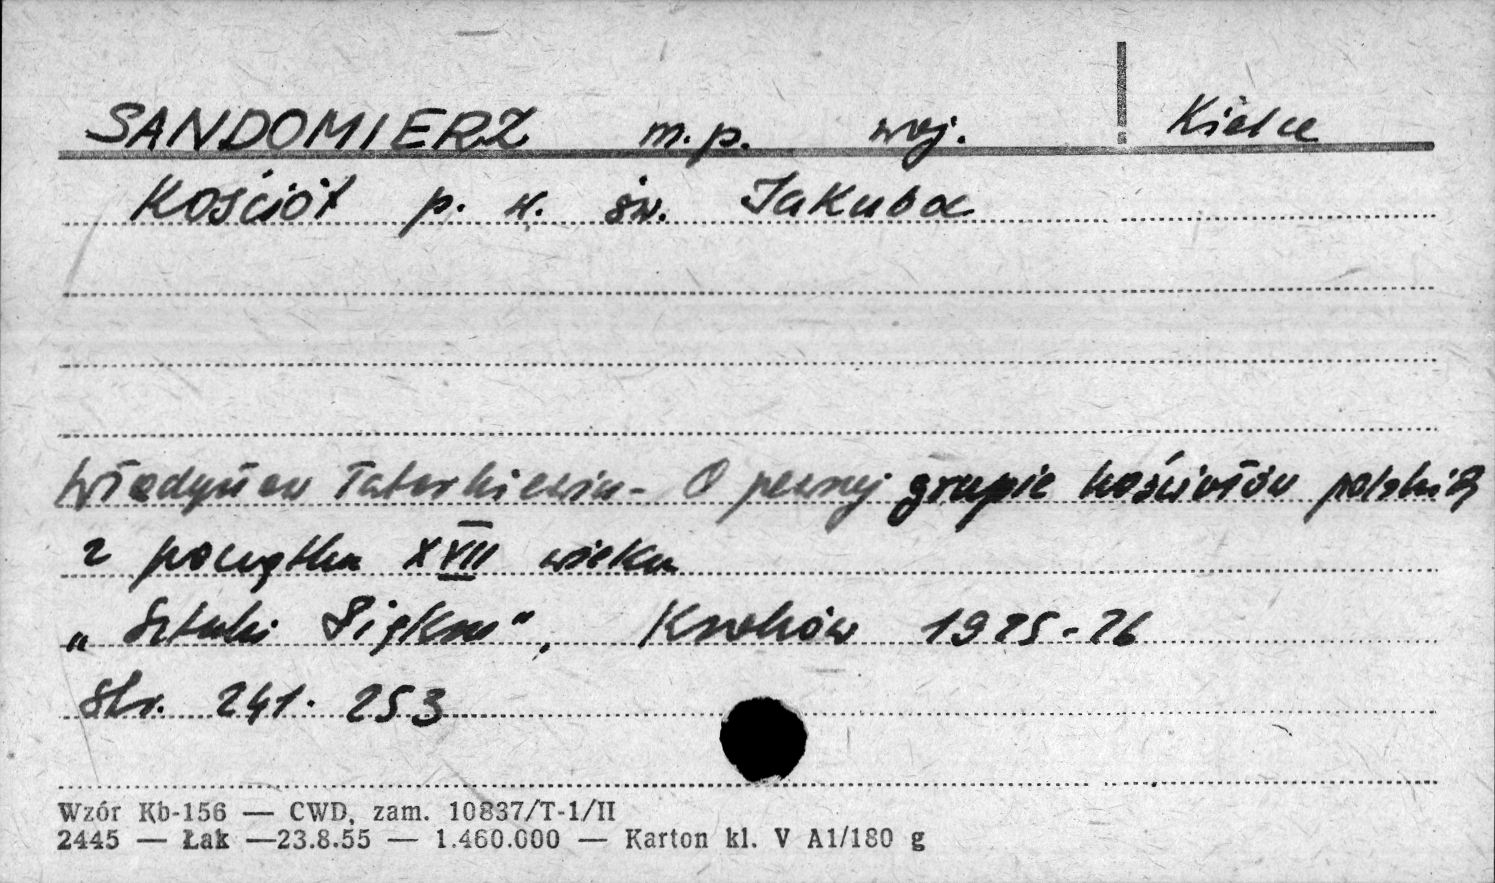 SANDOMIERZ m.p. woj. Kielce
Kościół p. w. św. Jakuba
Władysław Tatarkiewicz - O pewnej grupie kościołów polskich
z początku XVII wieku
„Sztuki Piękne", Kraków 1925-26
Str. 241. 253
Wzór Kb-156 — CWD, zam. 10837/T-1/II
2445 — Łak —23.8.55 — 1.460.000 — Karton kl. V A1/180 g